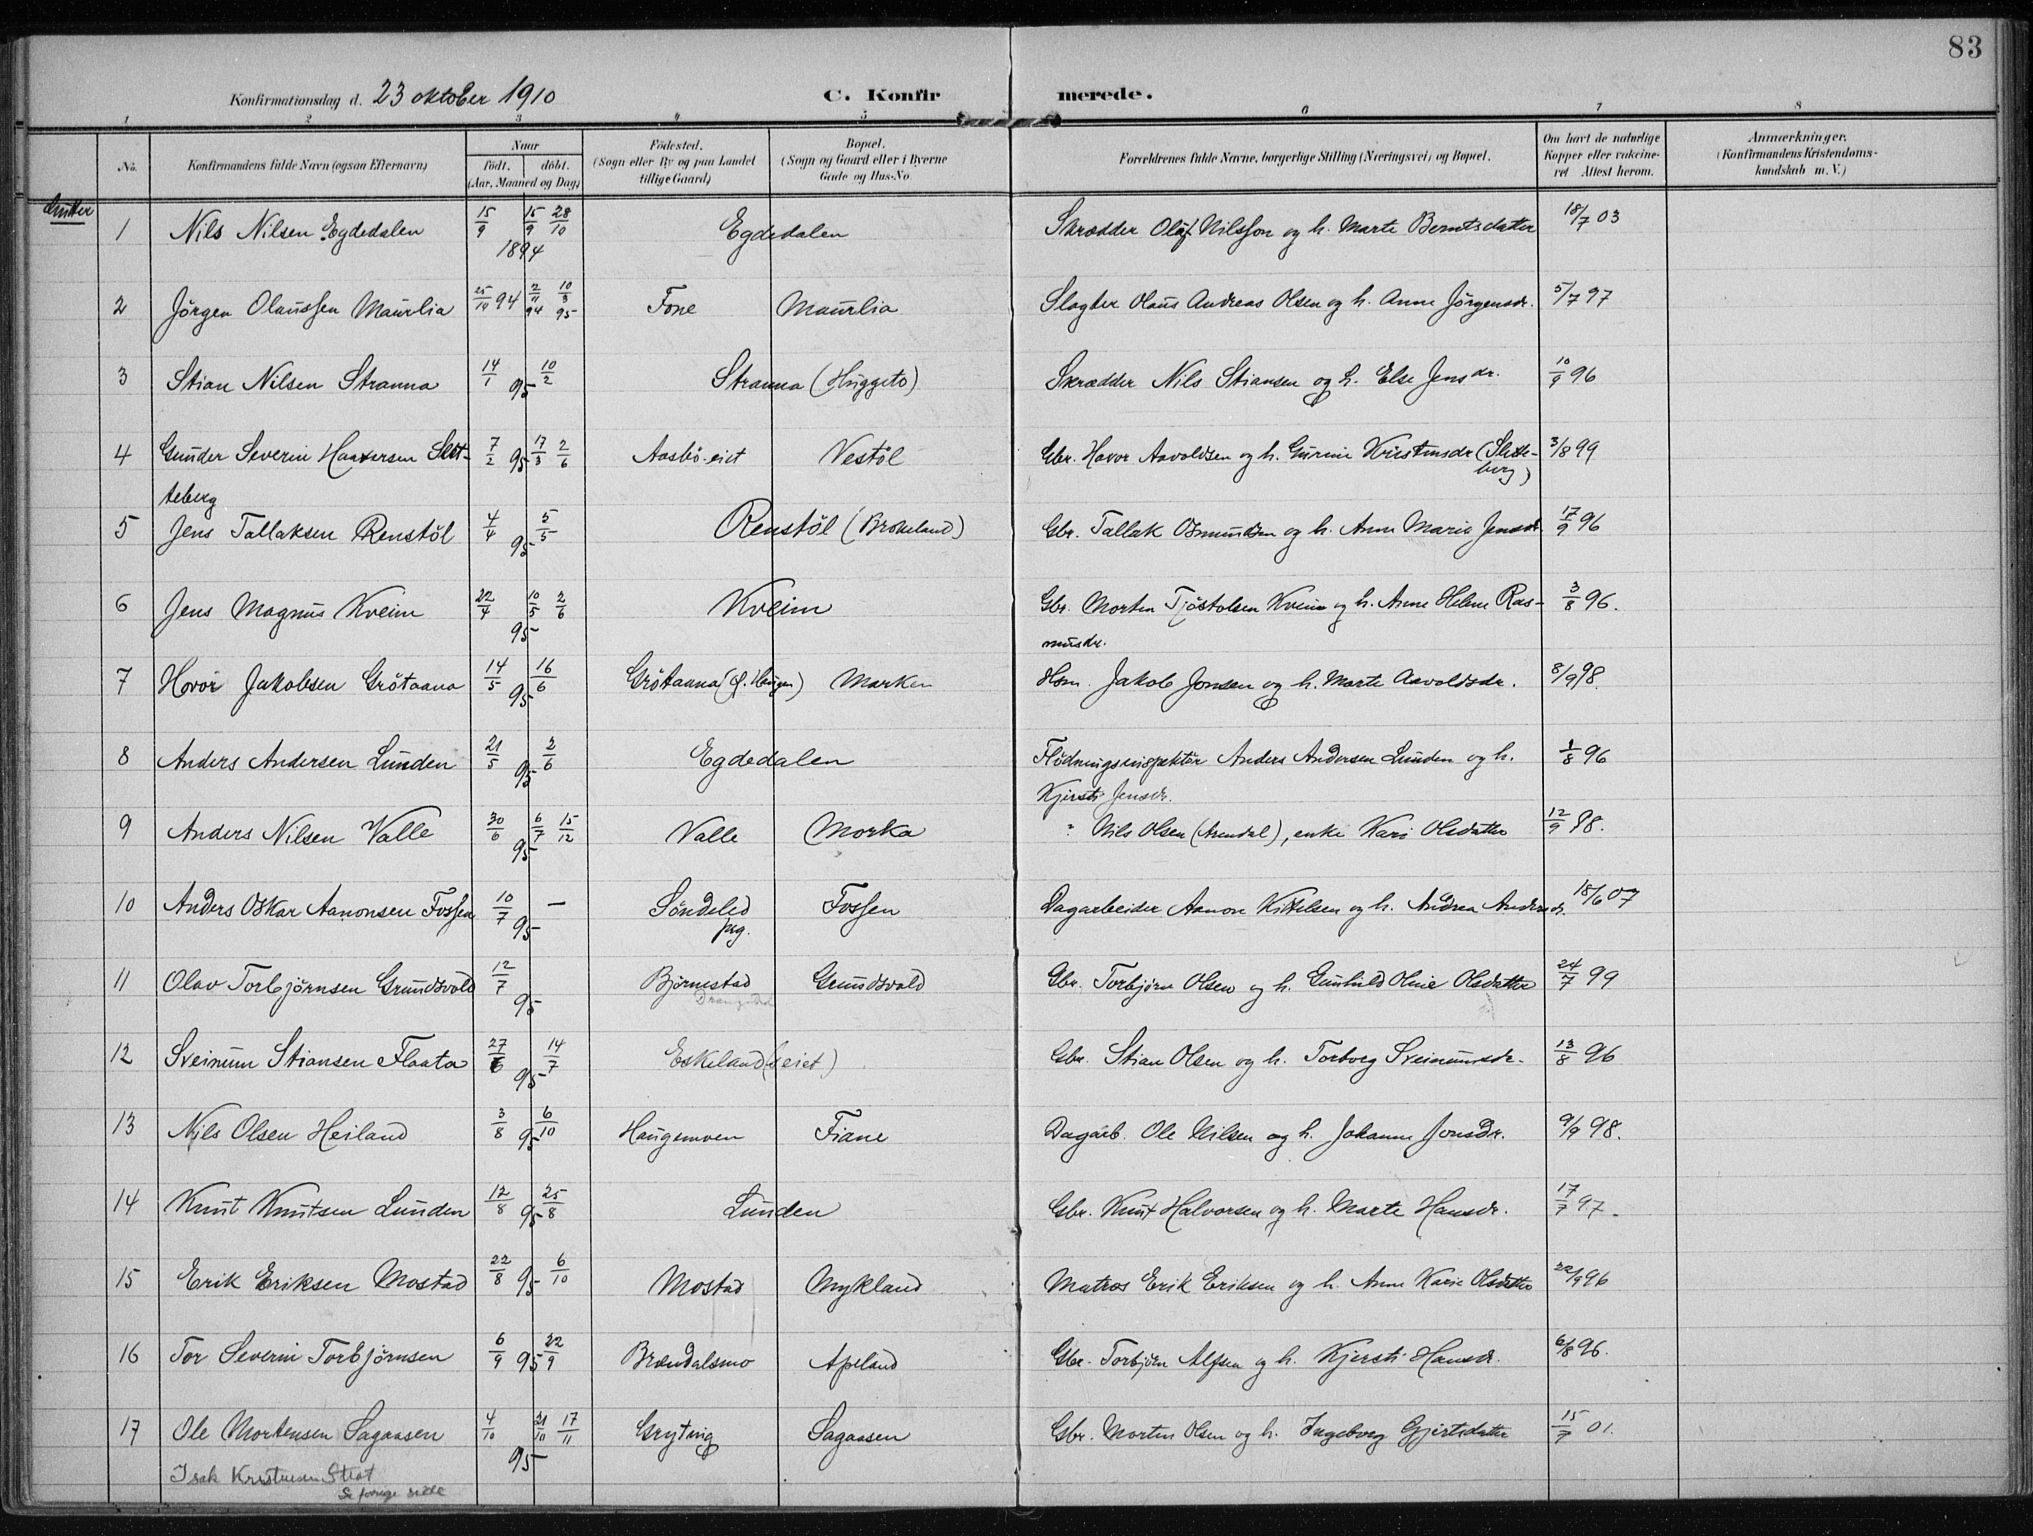 83
Konfirmationsdag d. 23 oktober 1910 C. Konfir merede.
1 2 3 4 5 6 7 8
No. Konfirmandens fulde Navn (ogsaa Efternavn) Naar født. døbt. (Aar, Maaned og Dag) Fødested. (Sogn eller By og paa Landet tillige Gaard) Bopæl. (Sogn og Gaard eller i Byerne Gade og Hus-No. Forældrenes fulde Navne, borgerlige Stilling (Næringsvei) og Bopæl. Om havt de naturlige Kopper eller vakcineret Attest herom. Anmærkninger. (Konfirmandens Kristendomskundskab m. V.)
Gutter
1 Nils Nilsen Egdedalen 15/9 15/9 28/10 1894 Egdedalen Skrædder Olaf Nilsson og h. Marte Berntsdatter 18/7 03
2 Jörgen Olaussen Maurlia 25/10 94 2/11 94 10/3 95 Fone Maurlia Slagter Olaus Andreas Olsen og h. Anne Jörgensdr. 5/7 97
3 Stian Nilsen Stranna 14/1 95 10/2 Stranna (Huggeto) Skrædder Nils Stiansen og h. Else Jensdr. 10/9 96
4 Gunder Severin Haaversen Slet- 7/2 95 17/3 2/6 Aasbö-eiet Vestöl Gbr. Havor Aavoldsen og h. Gurine Kristensdr (Slette- 3/8 99
teberg berg)
5 Jens Tallaksen Renstöl 4/4 95 5/5 Renstöl (Brokeland) Gbr. Tallak Osmundsen og h. Anne Marie Jensdr. 17/9 96
6 Jens Magnus Kveim 22/4 95 10/5 2/6 Kveim Gbr. Morten Tjöstolsen Kveim og h. Anne Helene Ras- 3/8 96.
musdr.
7 Hovor Jakobsen Grötaana 14/5 95 16/6 Grötaana (Haugen) Marken Hsm. Jakob Jonsen og h. Marte Aavoldsdr. 8/9 98.
8 Anders Andersen Lunden 21/5 95 2/6 Egdedalen Flödningsinspektör Anders Andersen Lunden og h. 1/8 96
Kjersti Jensdr.
9 Anders Nilsen Valle 30/6 95 6/7 15/12 Valle Morka " Nils Olsen (Arendal), enke Kari Olsdatter 12/9 98.
10 Anders Oskar Aanonsen Fossen 10/7 95 — Söndeled prg. Fossen Dagarbeider Aanon Kittelsen og h. Andrea Andersdr. 18/6 07
11 Olav Torbjörnsen Grundsvold 12/7 95 Björnestad Drangedal Grundsvald Gbr. Torbjörn Olsen og h. Gunhild Oline Olsdatter 24/7 99
12 Sveinum Stiansen Flaata 27/6 95 14/7 Eskeland (eiet) Gbr. Stian Olsen og h. Torborg Sveinumsdr. 13/8 96
13 Nils Olsen Heiland 3/8 95 6/10 Haugemoen Fiane Dagarb. Ole Nilsen og h. Johanne Jonsdr. 9/9 98.
14 Knut Knutsen Lunden 12/8 95 25/8 Lunden Gbr. Knut Halvorsen og h. Marte Hansdr. 17/7 97.
15 Erik Eriksen Mostad 22/8 95 6/10 Mostad Mykland Matros Erik Eriksen og h. Anne Karie Olsdatter 22/9 96
16 Tor Severin Torbjörnsen 6/9 95 22/9 Brændalsmo Apeland Gbr. Torbjörn Alfsen og h. Kjersti Hansdr. 6/8 96.
17 Ole Mortensen Sagaasen 4/10 95 21/10 17/11 Gryting Sagaasen Gbr. Morten Olsen og h. Ingeborg Gjertsdatter 15/7 01.
Isak Kristensen Strat
Se forrige side